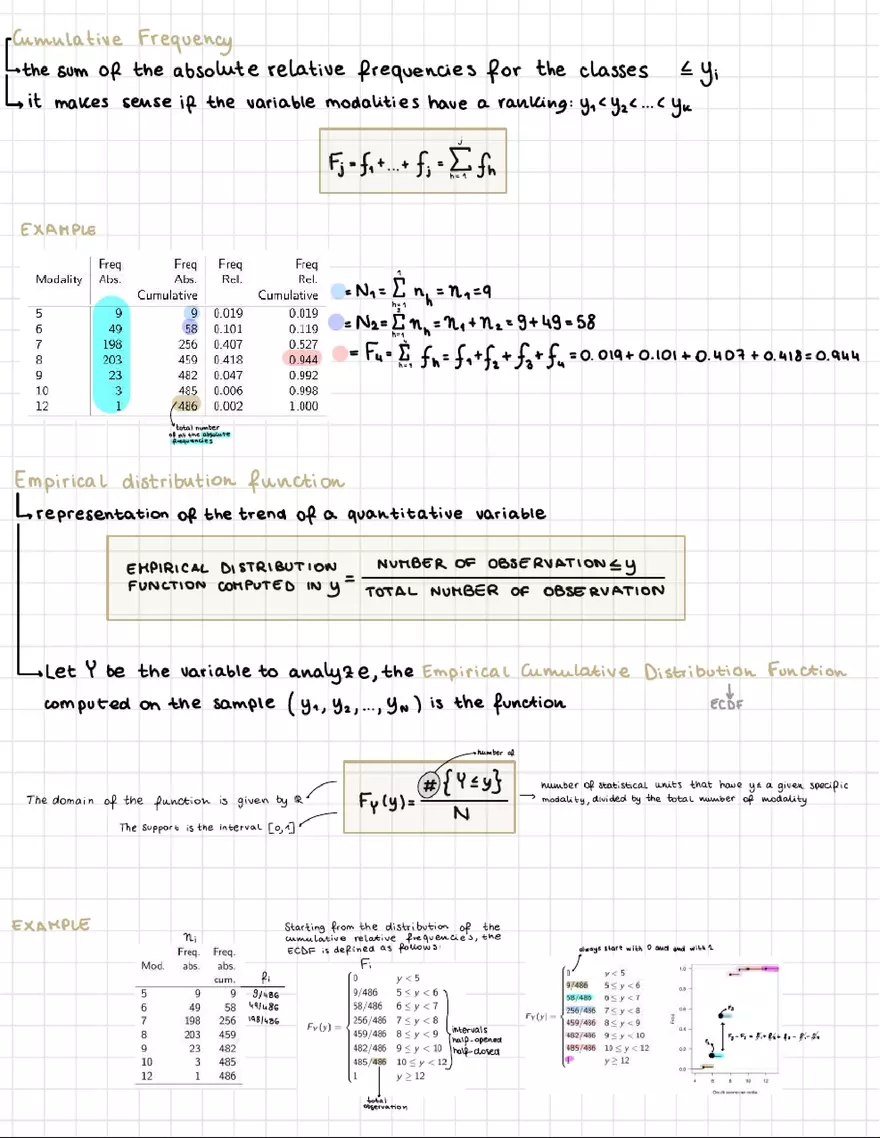 Cumulative Frequency
the sum of the absolute relative frequencies for the classes ≤ yi
it makes sense if the variable modalities have a ranking: y1<y2<...<yk
Fj=f1+...+fj=∑ j h=1 fh
EXAMPLE
Modality Freq Abs. Freq Abs. Cumulative Freq Rel. Freq Rel. Cumulative
5 9 9 0.019 0.019
6 49 58 0.101 0.119
7 198 256 0.407 0.527
8 203 459 0.418 0.944
9 23 482 0.047 0.992
10 3 485 0.006 0.998
12 1 486 0.002 1.000
total number
of all the absolute
frequencies
=N1=∑ 1 h=1 nh=n1=9
=N2=∑ 2 h=1 nh=n1+n2=9+49=58
=F4=∑ h=1 fh=f1+f2+f3+f4=0.019+0.101+0.407+0.418=0.944
Empirical distribution function
representation of the trend of a quantitative variable
EMPIRICAL DISTRIBUTION
FUNCTION COMPUTED IN y = NUMBER OF OBSERVATION≤y / TOTAL NUMBER OF OBSERVATION
Let Y be the variable to analyze, the Empirical Cumulative Distribution Function
ECDF
computed on the sample (y1, y2, ..., yN) is the function
number of
FY(y)= #{Y≤y} / N
The domain of the function is given by ℝ
The support is the interval [0,1]
number of statistical units that have y≤ a given specific
modality, divided by the total number of modality
EXAMPLE
ni
Mod. Freq. abs. Freq. abs. cum. fi
5 9 9 9/486
6 49 58 49/486
7 198 256 198/486
8 203 459
9 23 482
10 3 485
12 1 486
Starting from the distribution of the
cumulative relative frequencies, the
ECDF is defined as follows:
Fi
FY(y) =
0 y < 5
9/486 5 ≤ y < 6
58/486 6 ≤ y < 7
256/486 7 ≤ y < 8
459/486 8 ≤ y < 9
482/486 9 ≤ y < 10
485/486 10 ≤ y < 12
1 y ≥ 12
intervals
half-opened
half-closed
total
observation
always start with 0 and end with 1
FY(y) =
0 y < 5
9/486 5 ≤ y < 6
58/486 6 ≤ y < 7
256/486 7 ≤ y < 8
459/486 8 ≤ y < 9
482/486 9 ≤ y < 10
485/486 10 ≤ y < 12
1 y ≥ 12
1.0
0.8
0.6
0.4
0.2
0.0
4 6 8 10 12